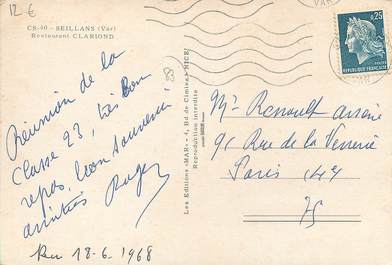 12 €
CS-40 - SEILLANS (Var)
Restaurant CLARIOND
Réunion de la
Classe 23, très bon
repas, bon souvenir
amitiés Roger
Reçu 18-6-1968
83
Les Editions «MAR» - 4, Bd de Cimiez - NICE
Reproduction interdite
VAR
0,25
REPUBLIQUE FRANÇAISE
POSTES
Mr Renoult
91 Rue de la Verrerie
Paris 4e
75